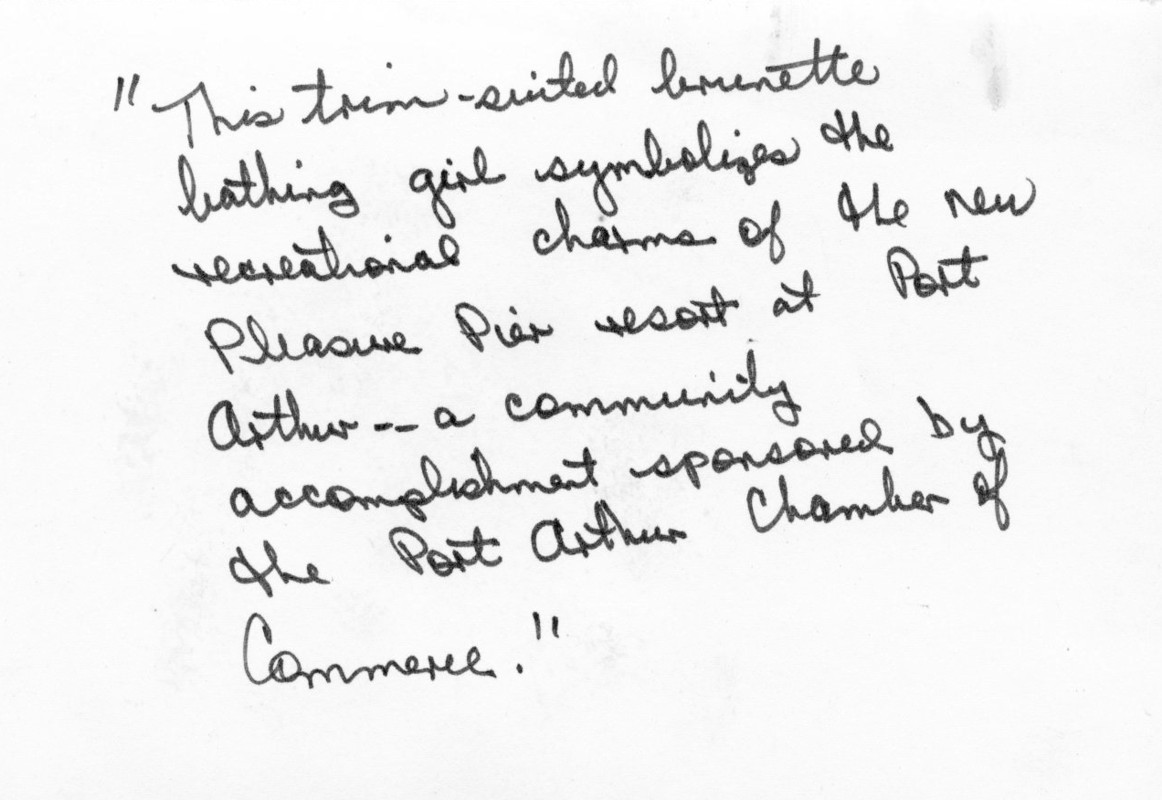 "This trim-suited brunette
bathing girl symbolizes the
recreational charms of the new
Pleasure Pier resort at Port
Arthur -- a community
accomplishment sponsored by
the Port Arthur Chamber of
Commerce."